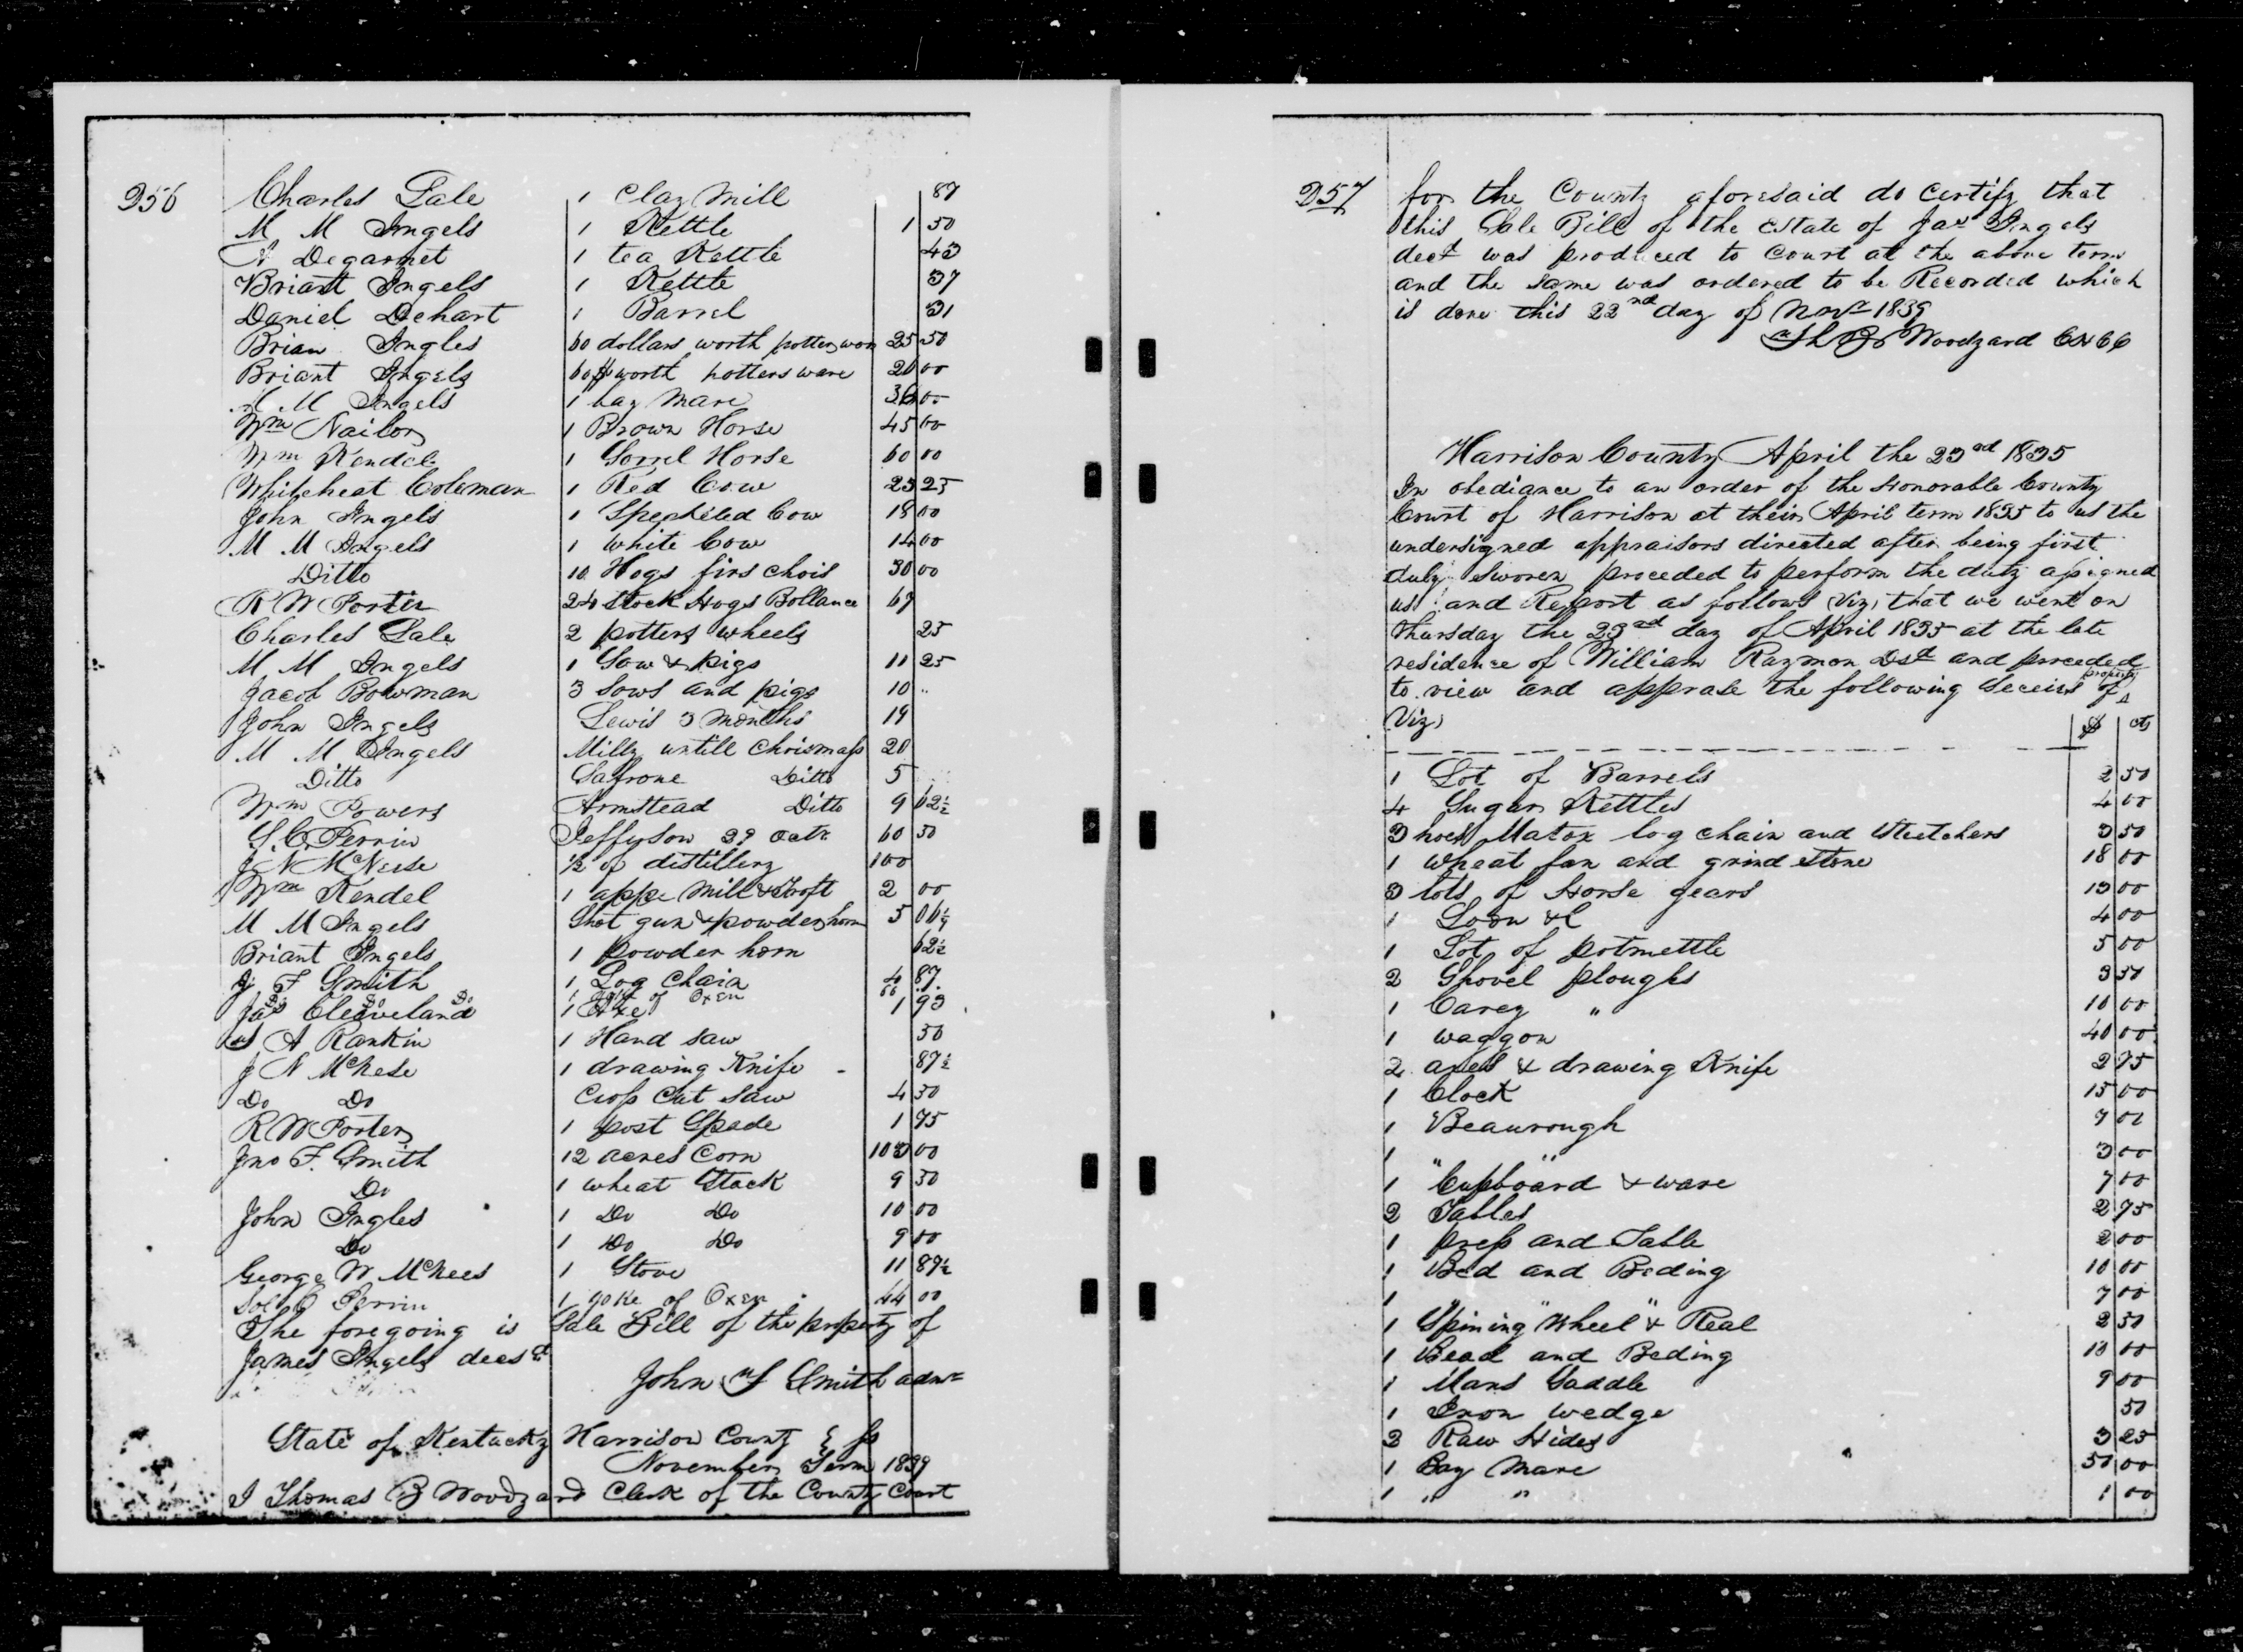 256
Charles Lale 1 Clay Mill 87
M M Ingels 1 Kettle 1 50
A Degarnet 1 tea Kettle 43
Briant Ingels 1 Kettle 37
Daniel Dehart 1 Barrel 31
Brian Ingles 60 dollars worth potters ware 25 50
Briant Ingels 60$ worth potters ware 26 00
M M Ingels 1 bay Mare 36 00
Wm Nailor 1 Brown Horse 45 00
Wm Kendel 1 Sorrel Horse 60 00
Whiteheat Coleman 1 Red Cow 23 25
John Ingels 1 Speckled Cow 18 00
M M Ingels 1 white Cow 14 00
Ditto 10 Hogs firs chois 30 00
R W Porter 24 Stock Hogs Bollance 67
Charles Lale 2 potters wheels 25
M M Ingels 1 Sow & pigs 11 25
Jacob Bowman 3 Sows and pigs 10 ..
John Ingels Lewis 3 months 19
M M Ingels Milly untill Chrismass 20
Ditto Safrone Ditto 5
Wm Powers Armstead Ditto 9 62½
S. C. Perrin Jeffyson 29 Octr 60 50
J N McNeese ½ of distillery 100
Wm Kendel 1 appe Mill & Troft 2 00
M M Ingels Shot gun & powder horn 5 06¼
Briant Ingels 1 powder horn 62½
J F Smith 1 Log Chain 4 87
Do Do Do 1 Yoke of Oxen 66 ..
Jas Cleveland 1 Axe 1 93
A Rankin 1 Hand saw 50
J N McNese 1 drawing Knife - 87½
Do Do Cross Cut Saw 4 50
R W Porter 1 post Spade 1 75
Jno F. Smith 12 acres Corn 103 00
Do 1 wheat Stack 9 50
John Ingles 1 Do Do 10 00
Do 1 Do Do 9 00
George W McNees 1 Stove 11 87½
Sol C Perrin 1 yoke of Oxen 44 00
The foregoing is Sale Bill of the property of
James Ingels decsd
John F Smith admr
State of Kentucky Harrison County } ss
November Term 1839
I Thomas B Woodyard Clerk of the County Court
257
for the County aforesaid do Certify that
this Sale Bill of the Estate of Jas Ingels
decd was produced to Court at the above term
and the same was ordered to be Recorded which
is done this 22nd day of Novr 1839
Th B Woodyard
Harrison County April the 23rd 1835
In obediance to an order of the Honorable County
Court of Harrison at their April term 1835 to us the
undersigned appraisors directed after being first
duly sworen proceded to perform the duty assigned
us and Report as follows Viz, that we went on
Thursday the 23rd day of April 1835 at the late
residence of William Raymon Dsd and proceded
to view and apprase the following Deceisd of property
Viz, $ cts
1 Lot of Barrels 2 50
4 Sugar Kettles 4 00
3 hoes Matox log chain and Stretchers 3 50
1 wheat fan and grind stone 18 00
3 lots of Horse gears 13 00
1 Loom &C 4 00
1 Lot of potmettle 5 00
2 Shovel ploughs 3 50
1 Carey " 10 00
1 waggon 40 00
2 axes & drawing Knife 2 75
1 Clock 15 00
1 Beaurough 7 00
1 " " 3 00
1 Cupboard & ware 7 00
2 Tables 2 75
1 press and Table 2 00
1 Bed and Beding 10 00
1 " " " 7 00
1 Spining Wheel & Real 2 50
1 Bead and Beding 10 00
1 Mans Saddle 9 00
1 Iron wedge 50
2 Raw Hides 3 25
1 Bay Mare 50 00
1 " " 1 00